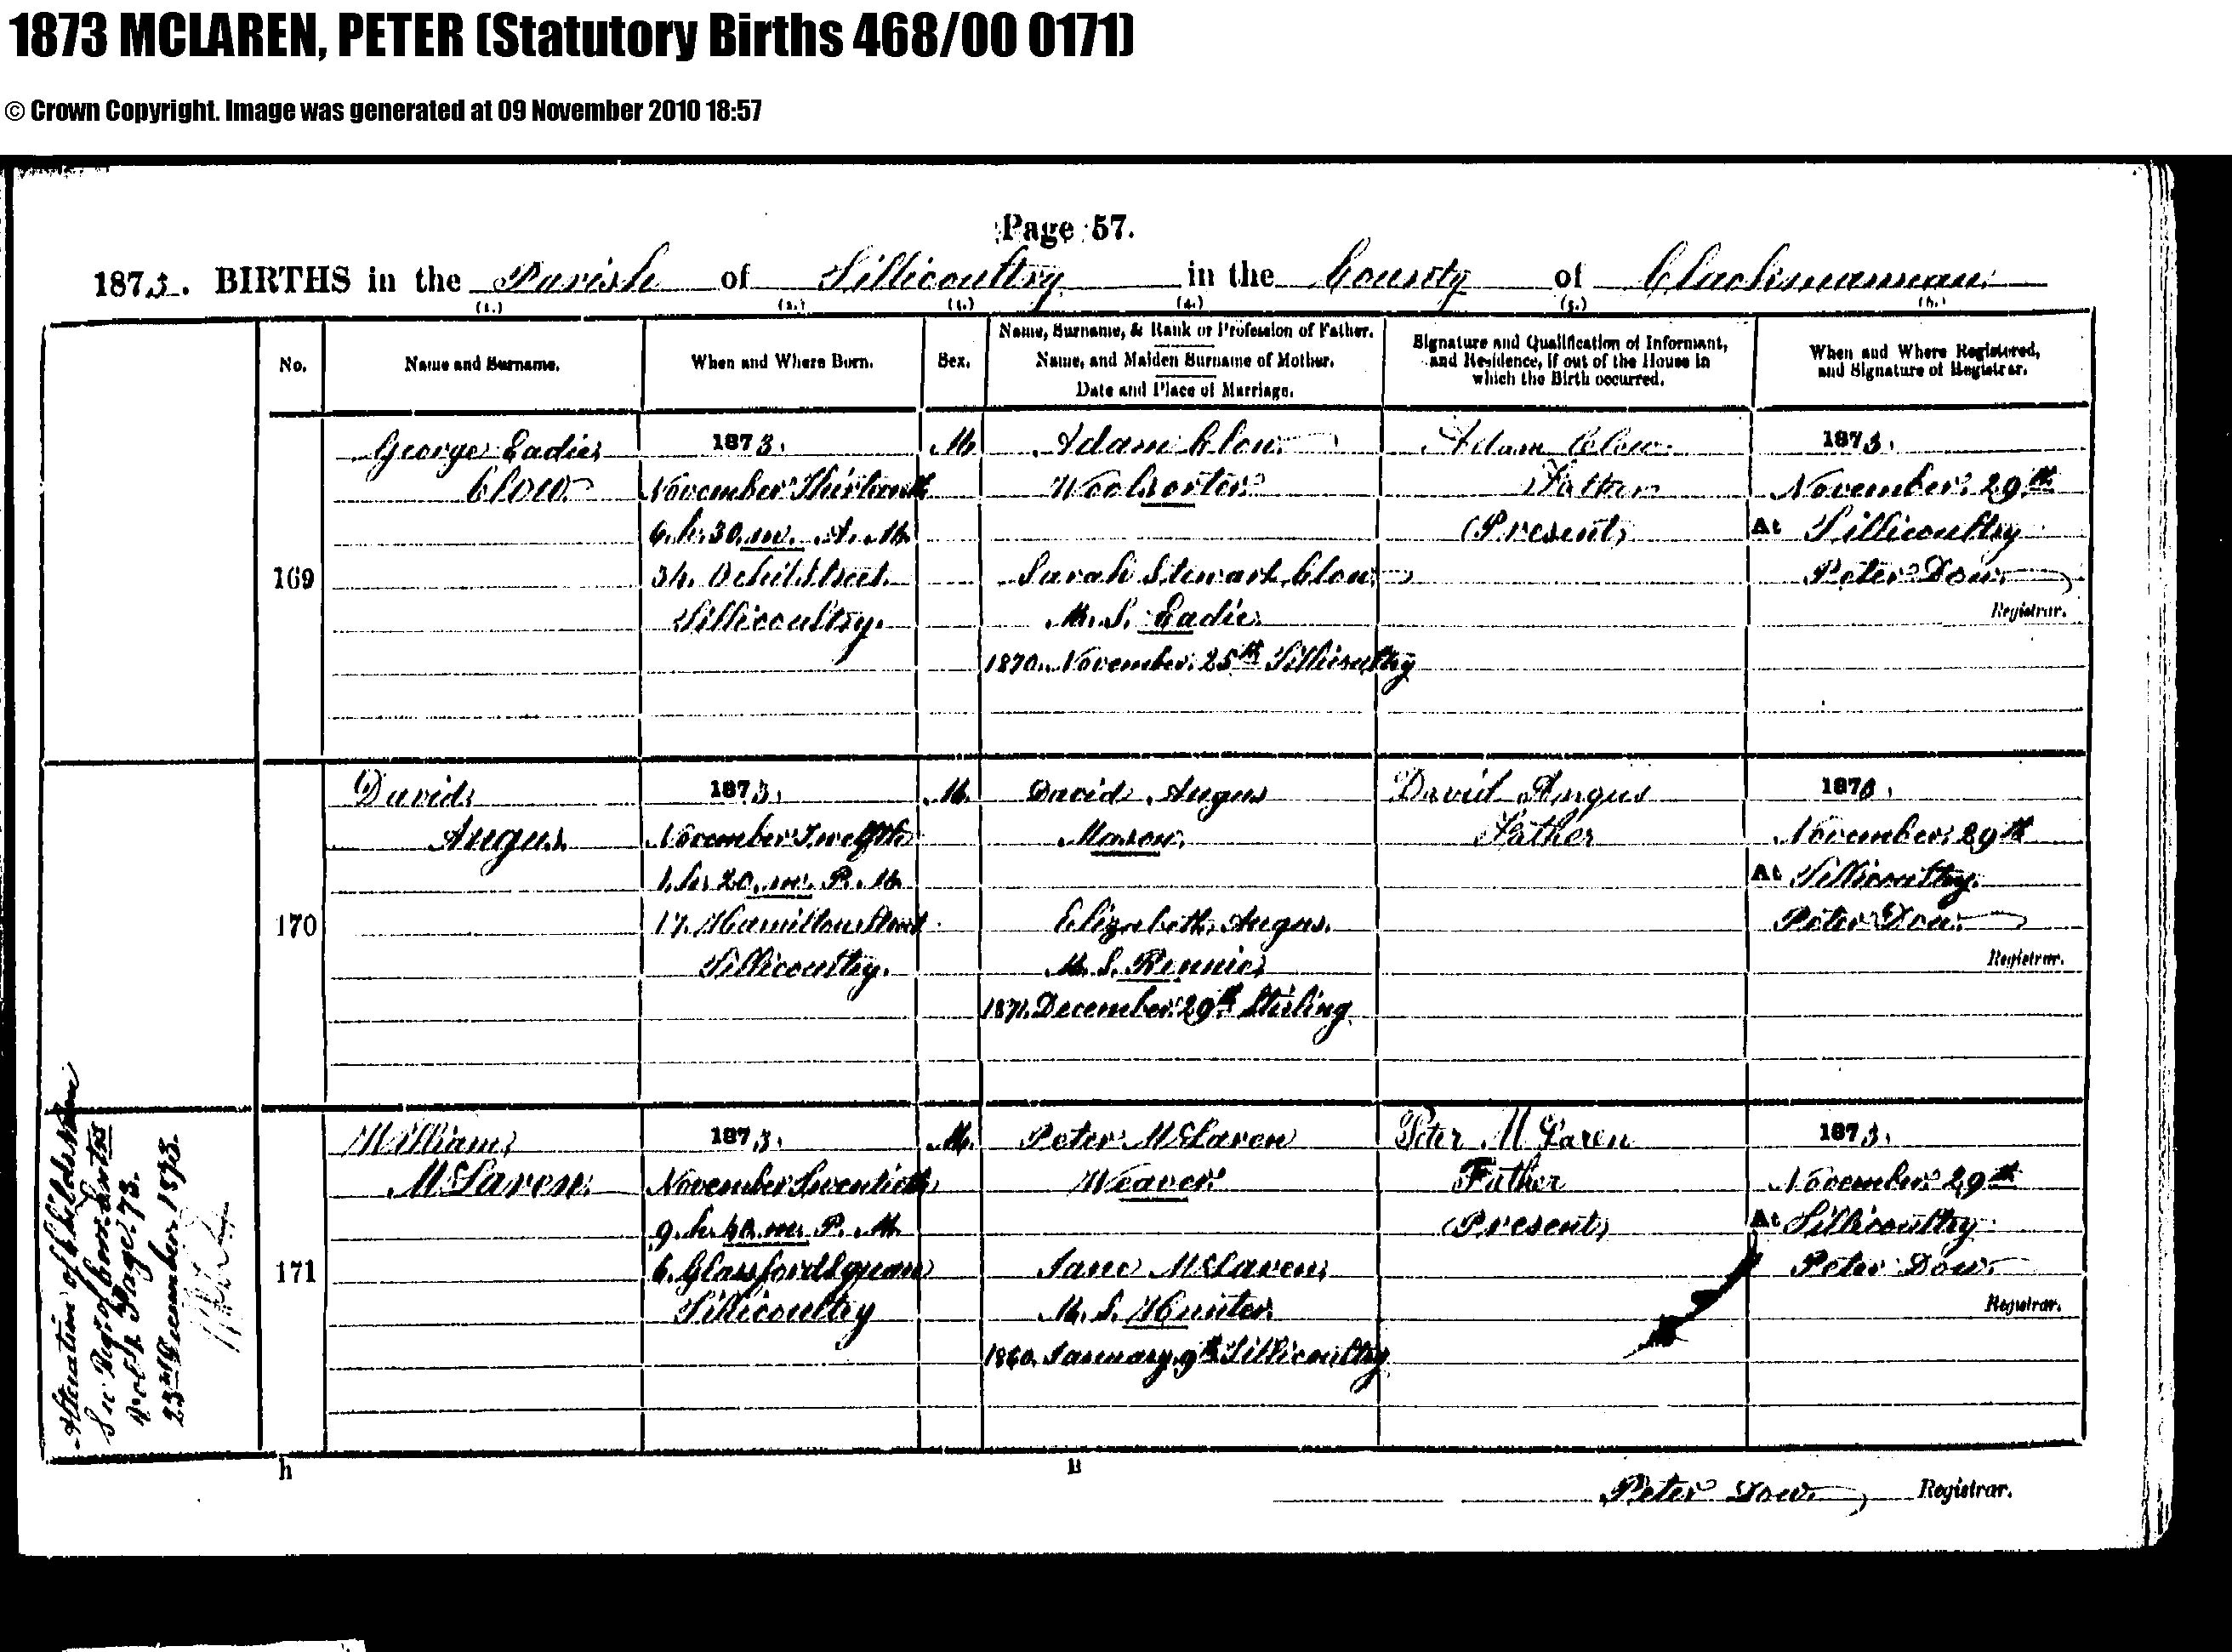 1873 MCLAREN, PETER (Statutory Births 468/00 0171)
© Crown Copyright. Image was generated at 09 November 2010 18:57
Page 57.
1873. BIRTHS in the Parish of Tillicoultry in the County of Clackmannan
(1.) (2.) (3.) (4.) (5.) (6.)
No.
Name and Surname.
When and Where Born.
Sex.
Name, Surname, & Rank or Profession of Father.
Name, and Maiden Surname of Mother.
Date and Place of Marriage.
Signature and Qualification of Informant,
and Residence, if out of the House in
which the Birth occurred.
When and Where Registered,
and Signature of Registrar.
169
George Eadie
Clow
1873.
November Thirteenth
6. h. 30. m. A. M.
34. Ochil Street
Tillicoultry.
M.
Adam Clow
Woolsorter
Sarah Stewart Clow
M. S. Eadie
1870. November 25th Tillicoultry
Adam Clow
Father
(Present)
1873.
November 29th
At Tillicoultry
Peter Dow
Registrar.
170
David
Angus
1873.
November Twelfth
1. h. 20. m. P. M.
17. Hamilton Street
Tillicoultry.
M.
David Angus
Mason
Elizabeth Angus.
M. S. Rennie
1871. December 29th Stirling
David Angus
Father
1873.
November 29th
At Tillicoultry.
Peter Dow
Registrar.
Alteration of Child's Name
See Regr. of Corrd. Entries
Vol. Page 73.
23rd December 1873.
171
William
McLaren
1873.
November Twentieth
9. h. m. P. M.
6. Glassford Square
Tillicoultry
M.
Peter McLaren
Weaver
Jane McLaren
M. S. Hunter
1860. January 9th Tillicoultry
Peter McLaren
Father
(Present)
1873.
November 29th
At Tillicoultry
Peter Dow
Registrar.
h B
Peter Dow Registrar.